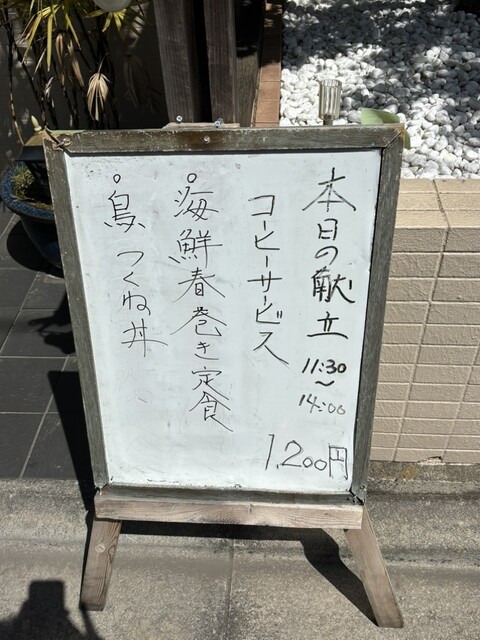 本日の献立
11:30
~
14:00
コーヒーサービス
1,200円
○海鮮春巻き定食
○鳥つくね丼